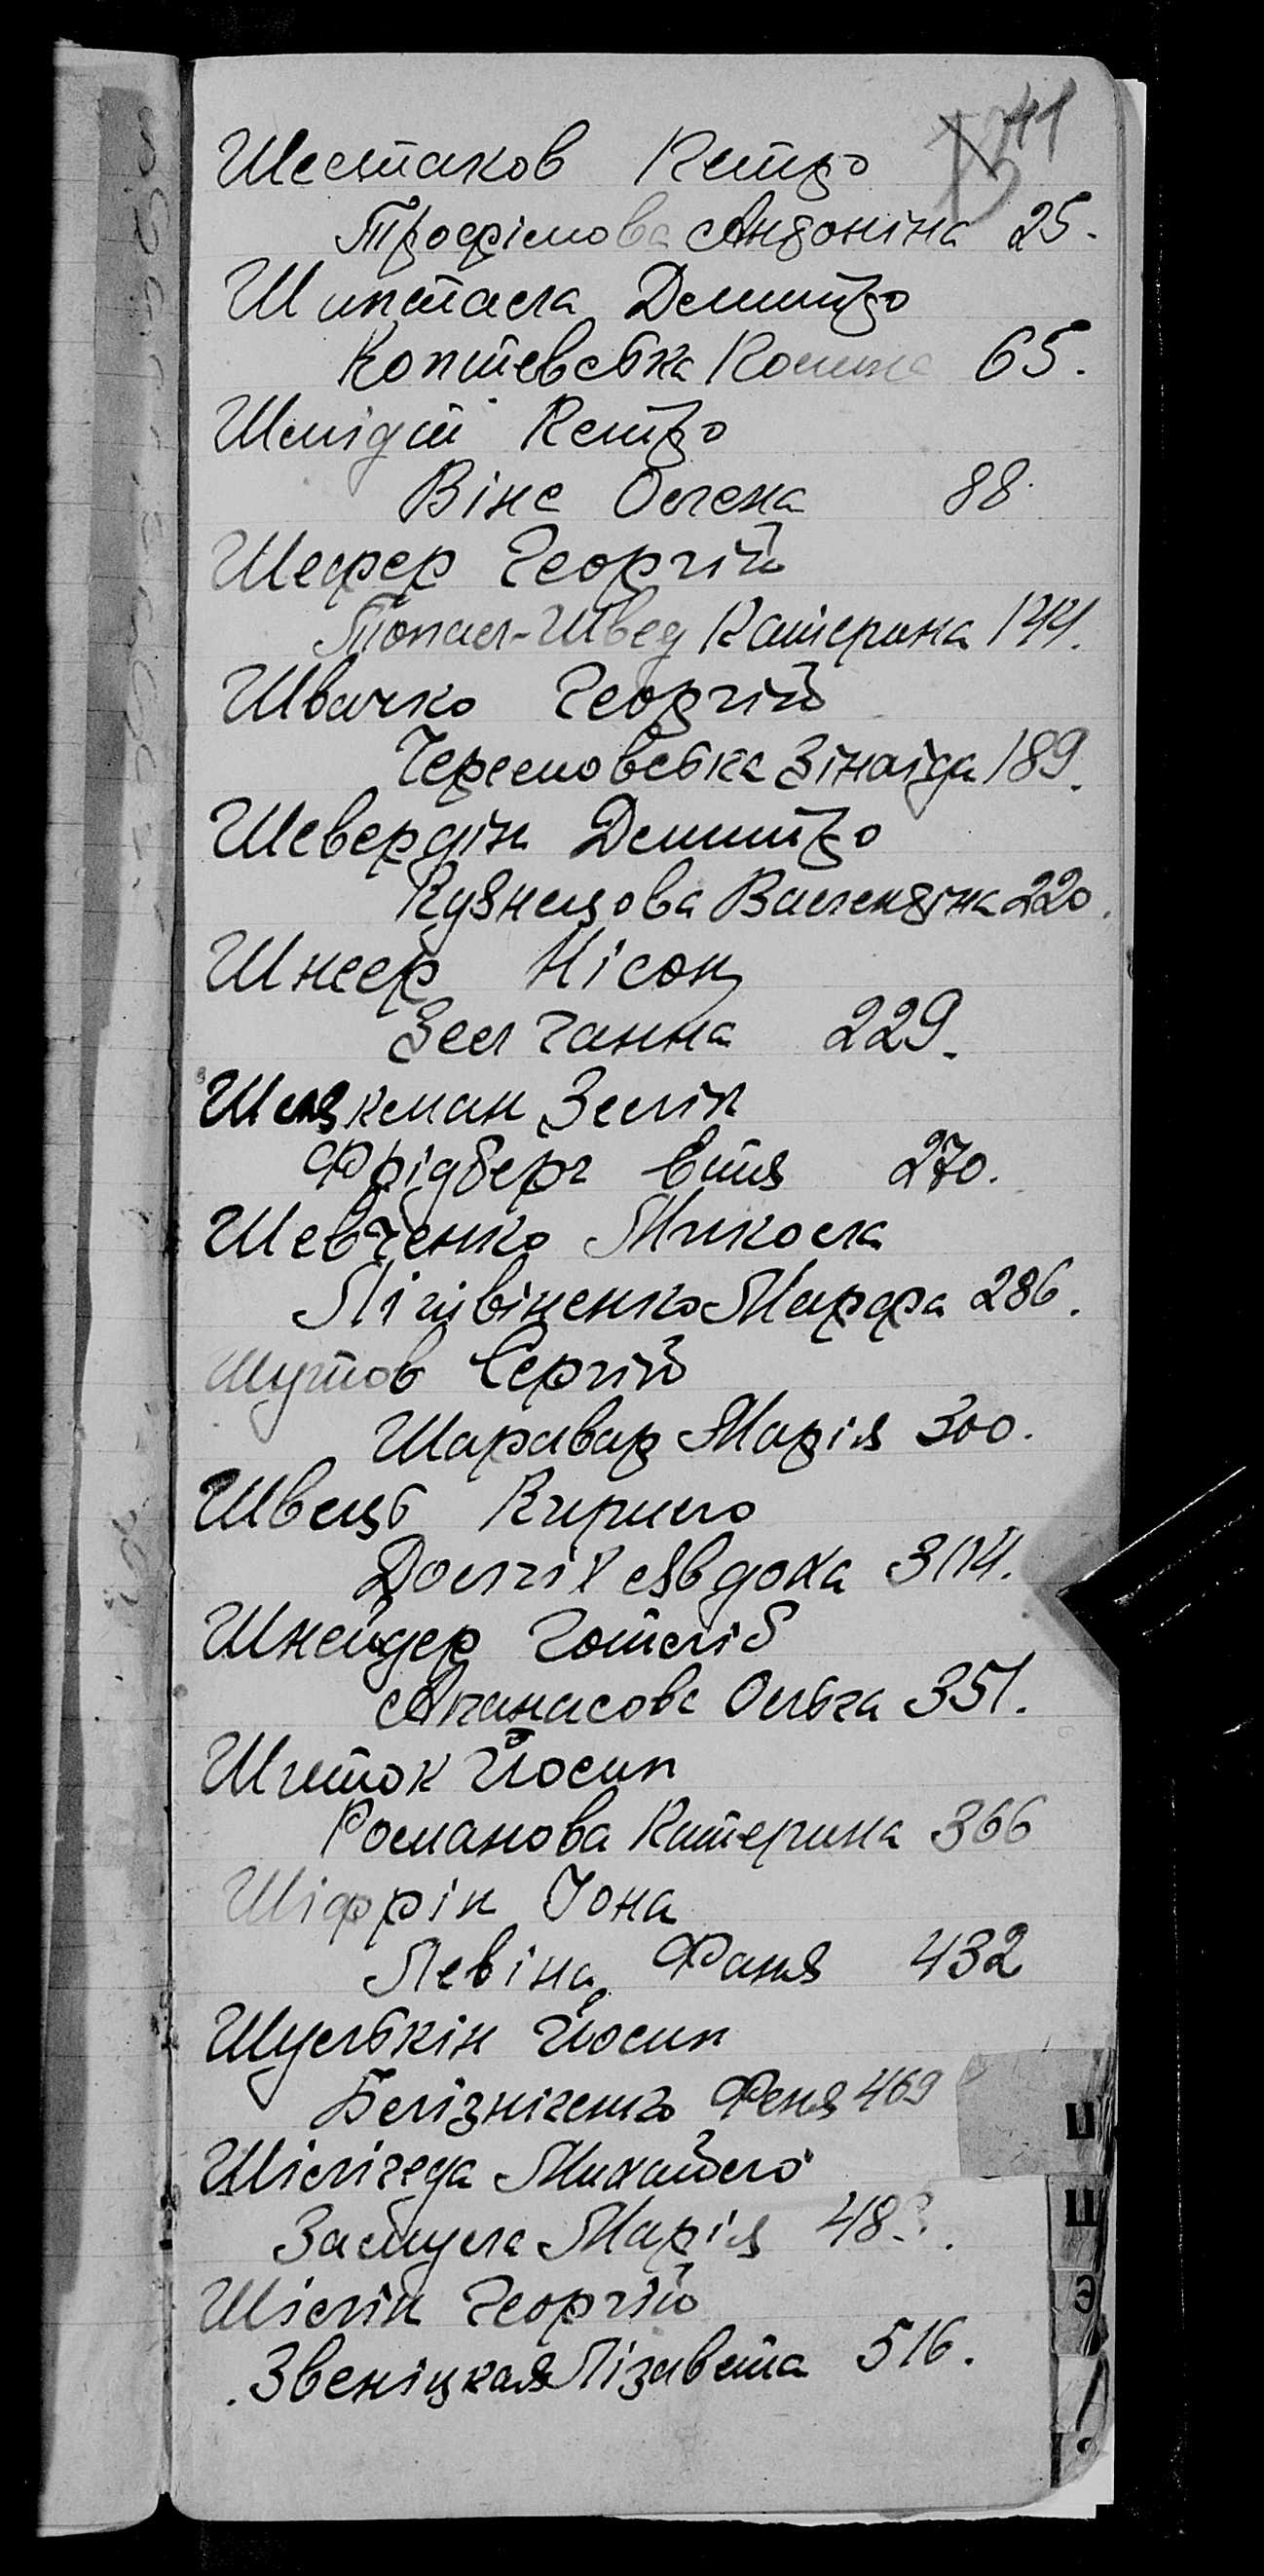 41
Шестаков Петро
Трофімова Андоніна 25.
Шиптала Дмитро
Коптевська 65.
Шмідт Петро
Вінс Олена 88
Шефер Георгій
Топал-Швед Катерина 144.
Швачко Георгій
Черемовська Зінаіда 189.
Шевердін Дмитро
Кузнецова Валендіна 220.
Шнеер Нісон
Зел Ганна 229.
Зелік
Фрідберг Етя 270.
Шевченко Микола
Літвіненко Марфа 286.
Шутов Сергій
Шаравар Марія 300.
Швець Кирило
Долгіх Явдоха 314.
Шнейдер Готліб
Апанасова Ольга 351.
Шиток Йосип
Романова Катерина 366
Шіфрін Іона
Левіна Фаня 432
Шулькін Йосип
Феня 469
Шілігеда Михайло
Марія
Шілін Георгій
Звеніцкая Лізавета 516.
Ш
Э